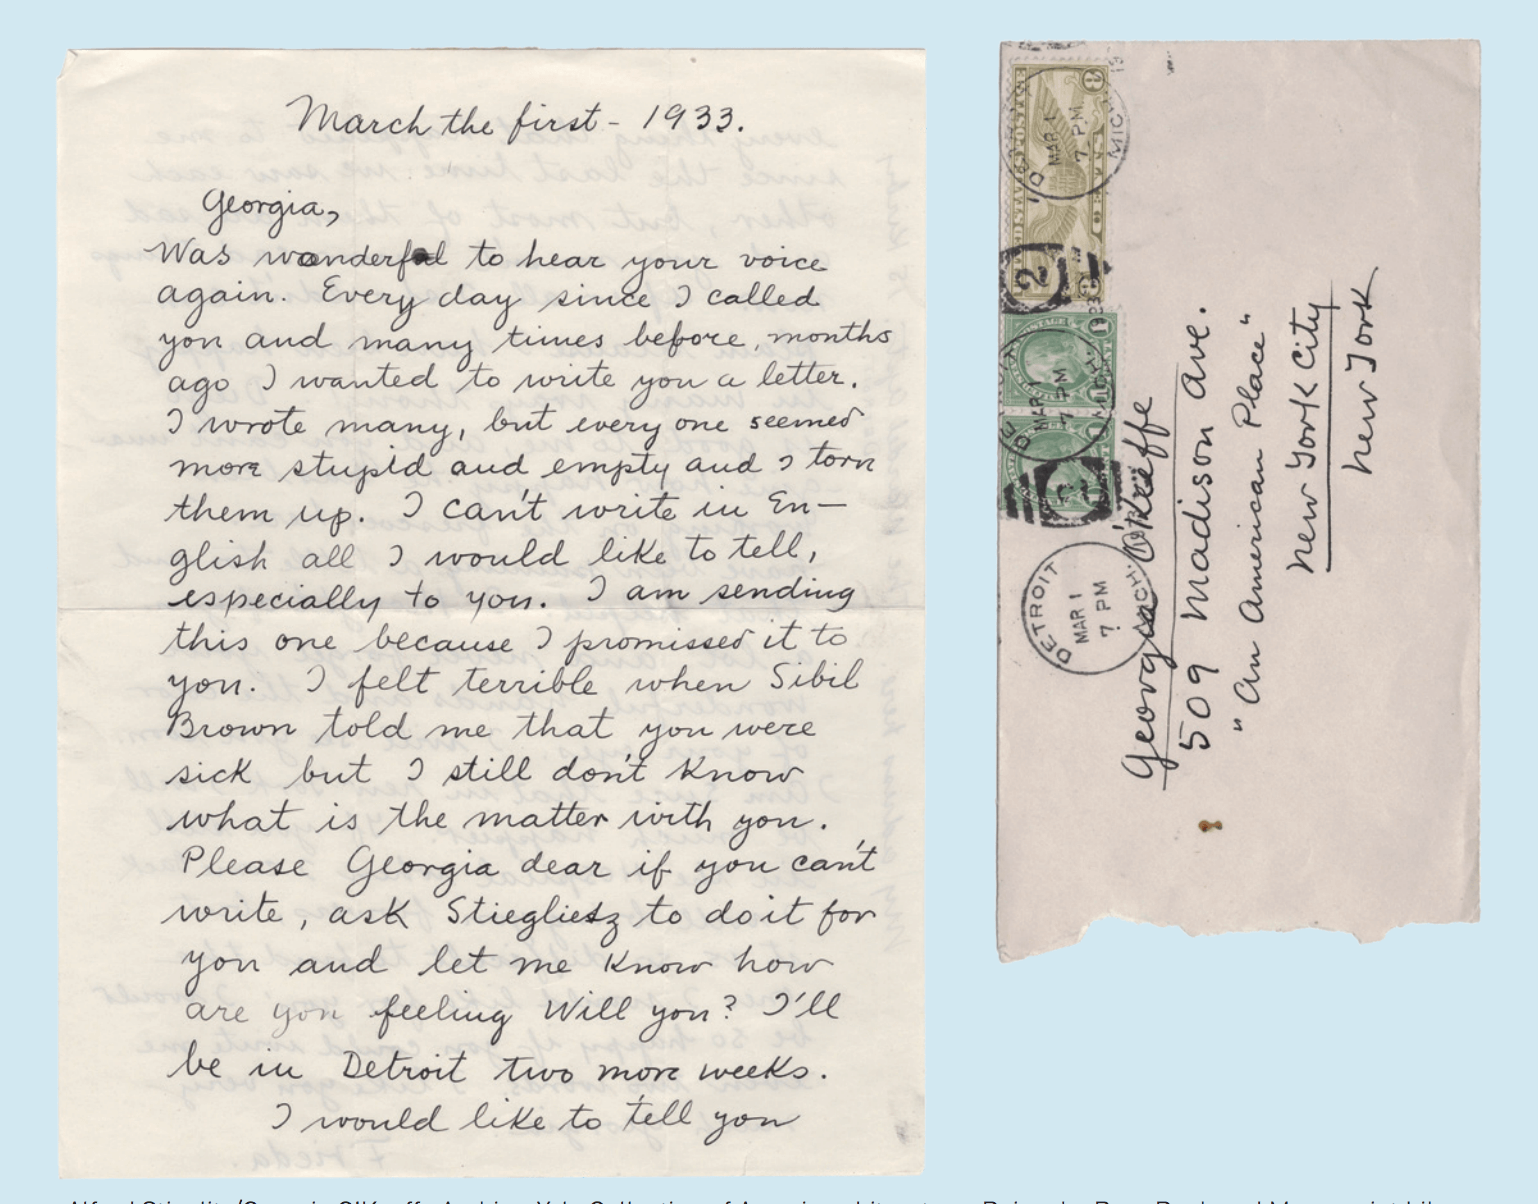 March the first - 1933.
Georgia,
Was wonderful to hear your voice
again. Every day since I called
you and many times before, months
ago I wanted to write you a letter.
I wrote many, but every one seemed
more stupid and empty and I torn
them up. I can't write in En—
glish all I would like to tell,
especially to you. I am sending
this one because I promissed it to
you. I felt terrible when Sibil
Brown told me that you were
sick but I still don't know
what is the matter with you.
Please Georgia dear if you can't
write, ask Stiegliesz to do it for
you and let me know how
are you feeling Will you? I'll
be in Detroit two more weeks.
I would like to tell you
DETROIT
MAR 1
7 PM
MICH.
MAR 1
7 PM
MICH.
MAR 1
7 PM
MICH.
2
Georgia O'Keeffe
509 Madison Ave.
"An American Place"
New York City
New York